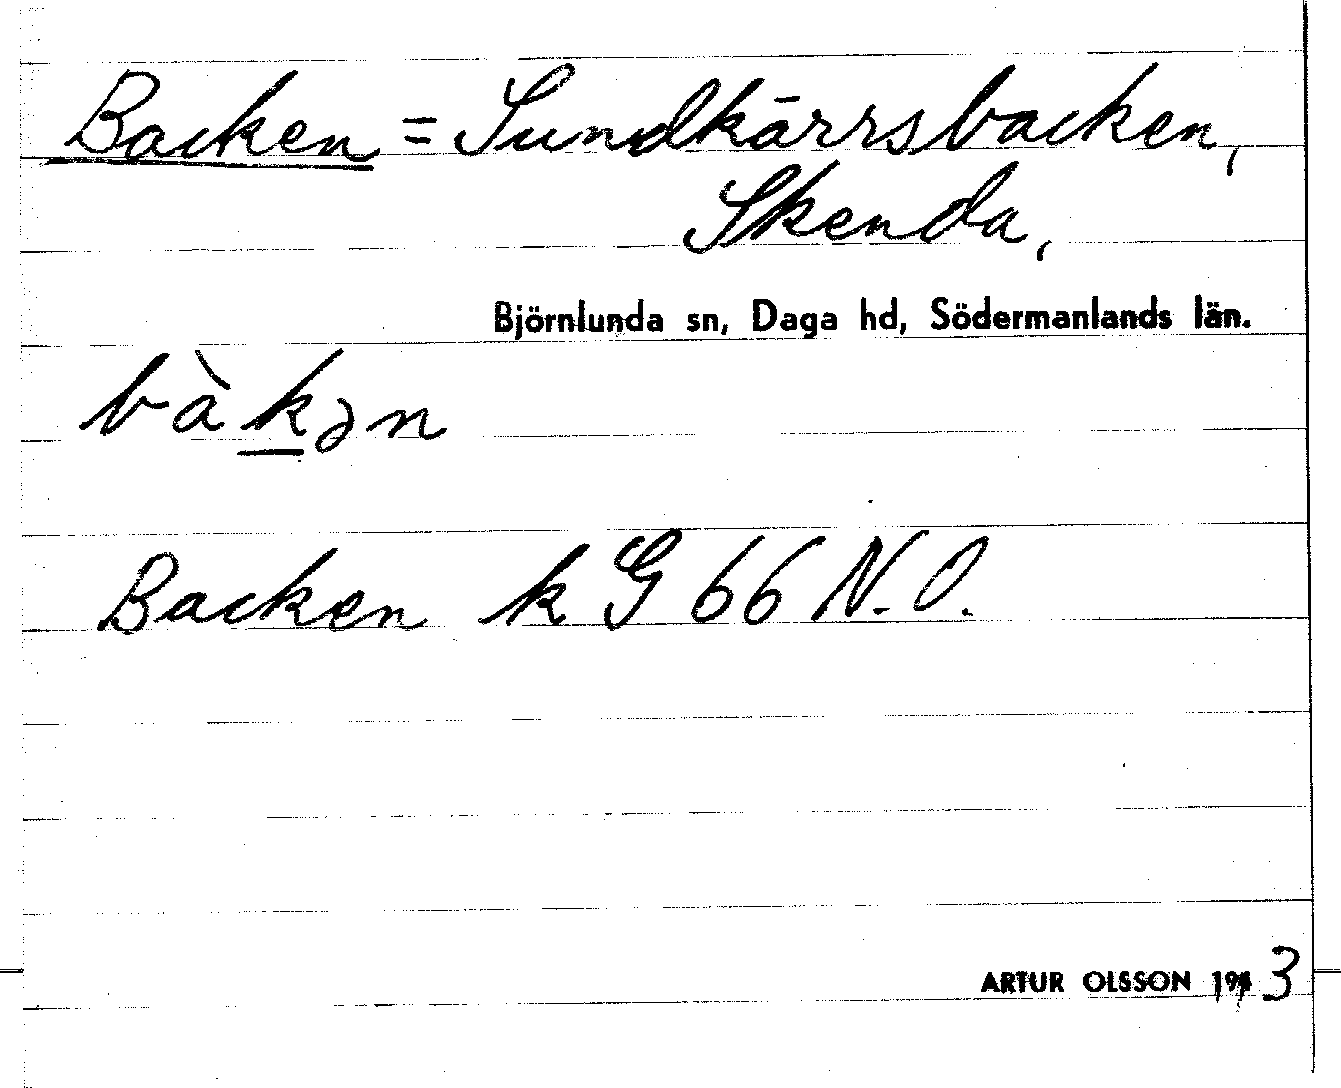 Backen = Sundkärrsbacken,
Skenda,
Björnlunda sn, Daga hd, Södermanlands län.
bàkən
Backen k G 66 N.O.
ARTUR OLSSON 1943